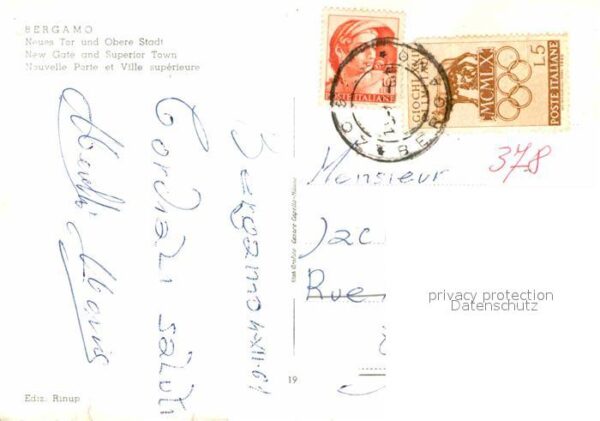 BERGAMO
Neues Tor und Obere Stadt
New Gate and Superior Town
Nouvelle Porte et Ville supérieure
Bergamo 4-XII-61
Cordiali saluti
POSTE ITALIANE
GIOCHI
MCMLX
L.5
POSTE ITALIANE
BERGAMO
378
Monsieur
Jac
Rue
privacy protection
Datenschutz
19
Ediz. Rinup